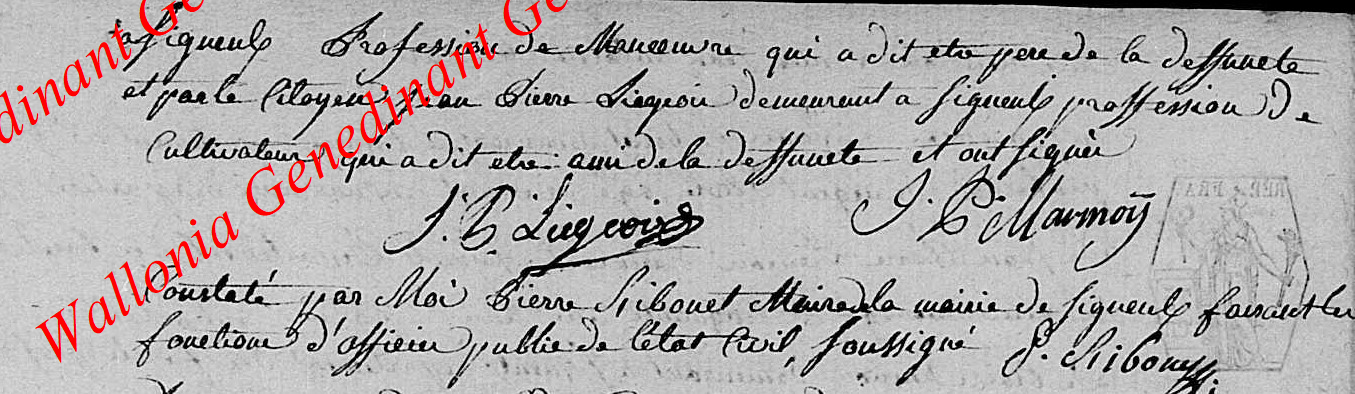 a Signeulx Profession de Manoeuvre qui a dit etre pere de la deffuncte
et par le Citoyen Jean Pierre Liegeois demeurant a Signeulx proffession de
Cultivateur qui a dit etre ami de la deffuncte et ont signér
J. P. Liegeois J. P. Marmoÿ
Constaté par Moi Pierre Maire de la mairie de Signeulx faisant les
fonctions d'officier public de l'état Civil, Soussigné P.
REP. FRA
Wallonia Genedinant Genedinant Ge
dinant Ge